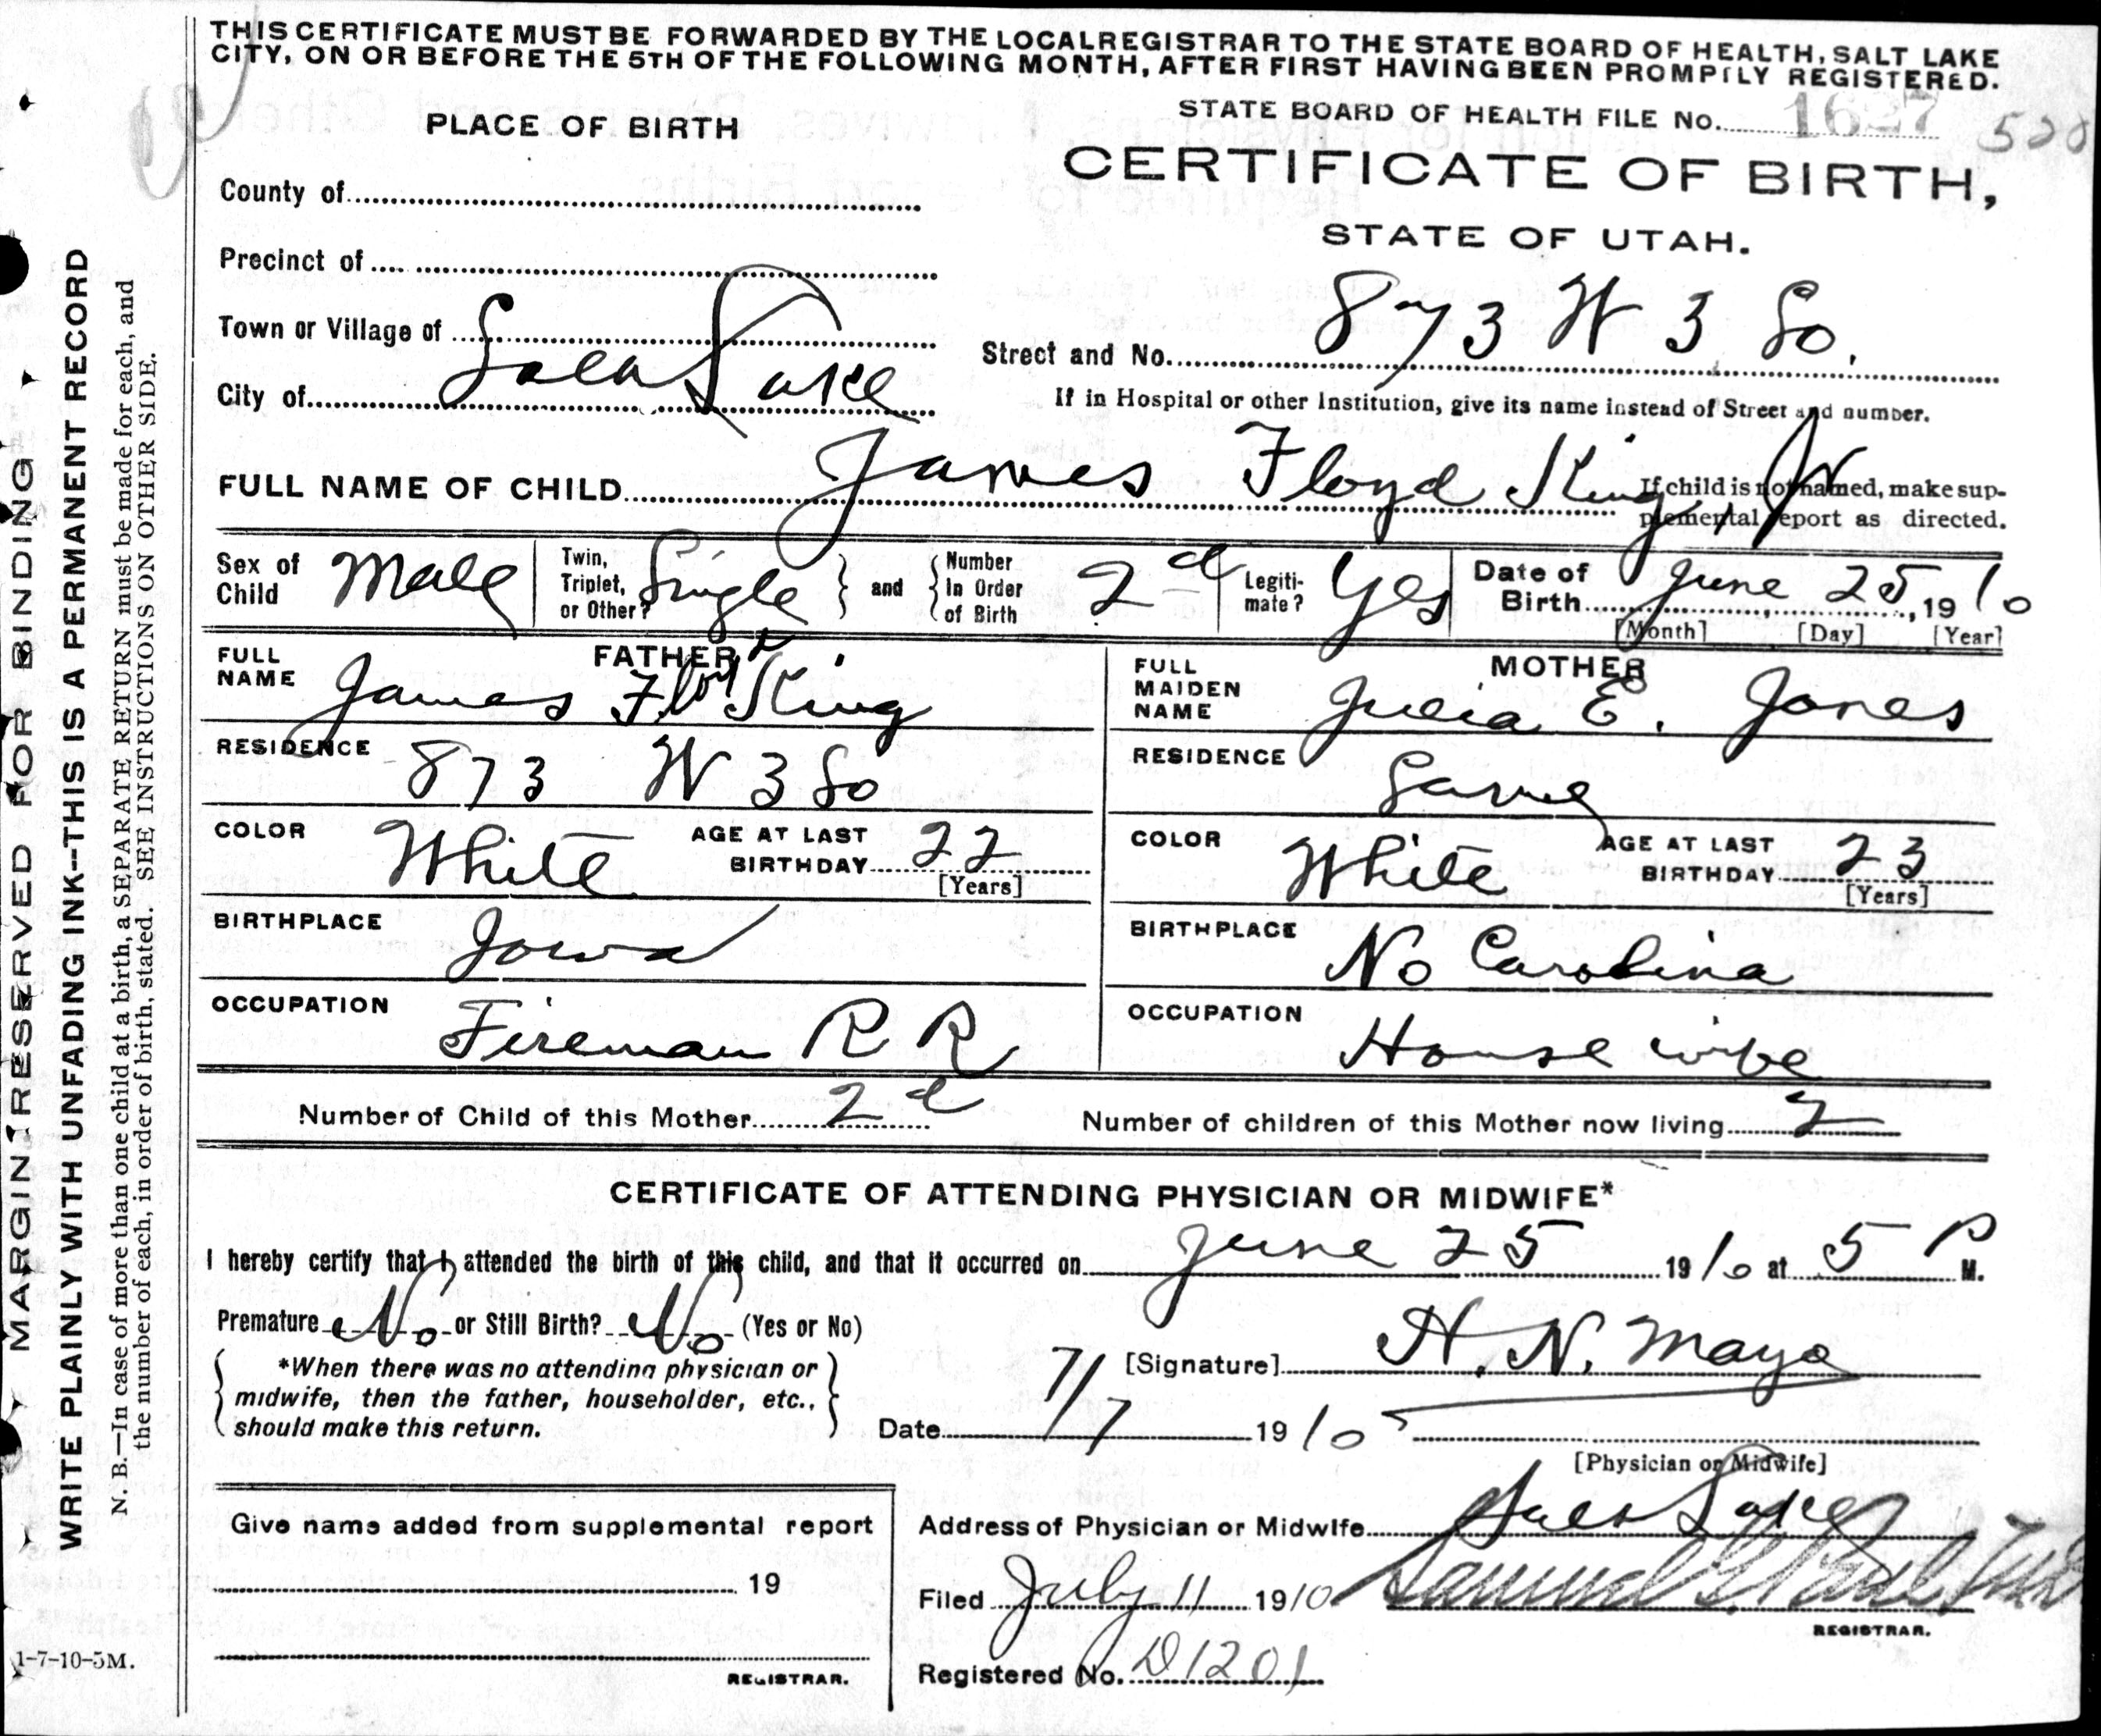 THIS CERTIFICATE MUST BE FORWARDED BY THE LOCAL REGISTRAR TO THE STATE BOARD OF HEALTH, SALT LAKE
CITY, ON OR BEFORE THE 5TH OF THE FOLLOWING MONTH, AFTER FIRST HAVING BEEN PROMPTLY REGISTERED.
STATE BOARD OF HEALTH FILE No. 1627
PLACE OF BIRTH
CERTIFICATE OF BIRTH,
STATE OF UTAH.
County of
Precinct of
Town or Village of
Street and No. 873 W 3 So.
City of Salt Lake
If in Hospital or other Institution, give its name instead of Street and number.
FULL NAME OF CHILD James Floyd King, Jr
If child is not named, make sup-
plemental report as directed.
Sex of Child Male
Twin, Triplet, or Other? Single and Number In Order of Birth 2d
Legiti-mate? Yes
Date of Birth June 25, 1910
[Month] [Day] [Year]
FATHER
FULL NAME James Floyd King
RESIDENCE 873 W 3 So
COLOR White AGE AT LAST BIRTHDAY 22
[Years]
BIRTHPLACE Iowa
OCCUPATION Fireman R R
MOTHER
FULL MAIDEN NAME Julia E. Jones
RESIDENCE Same
COLOR White AGE AT LAST BIRTHDAY 23
[Years]
BIRTHPLACE No Carolina
OCCUPATION House wife
Number of Child of this Mother 2d
Number of children of this Mother now living 2
CERTIFICATE OF ATTENDING PHYSICIAN OR MIDWIFE*
I hereby certify that I attended the birth of this child, and that it occurred on June 25 1910 at 5 P M.
Premature No or Still Birth? No (Yes or No)
*When there was no attending physician or
midwife, then the father, householder, etc.,
should make this return.
[Signature] H. N. Mayo
Date 7/7 1910
[Physician or Midwife]
Give name added from supplemental report
19
REGISTRAR.
Address of Physician or Midwife Salt Lake
Filed July 11 1910 Samuel G. Paul
REGISTRAR.
Registered No. D1201
1-7-10-5M.
MARGIN RESERVED FOR BINDING
WRITE PLAINLY WITH UNFADING INK--THIS IS A PERMANENT RECORD
N. B.—In case of more than one child at a birth, a SEPARATE RETURN must be made for each, and
the number of each, in order of birth, stated. SEE INSTRUCTIONS ON OTHER SIDE.